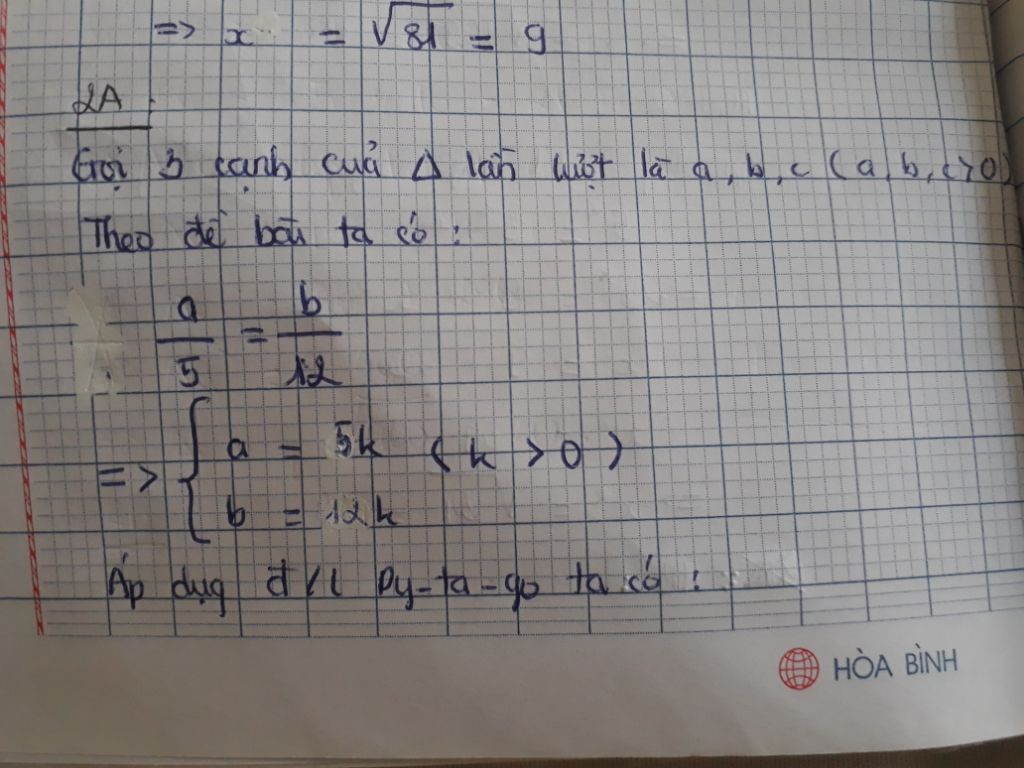 => x = √81 = 9
2A.
Gọi 3 cạnh cuả Δ lần lượt là a, b, c (a, b, c>0)
Theo đề bài ta có :
a/5 = b/12
=> { a = 5k (k > 0)
b = 12k
Áp dụg đ/l Py-ta-go ta có :
HÒA BÌNH